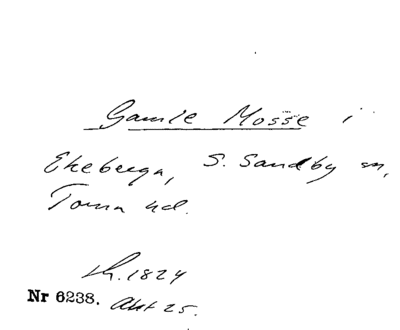 Gamle Mosse i
Ekeberga, S. Sandby sn,
Torna hd.
Lh. 1824
Nr 6238. Akt 25.